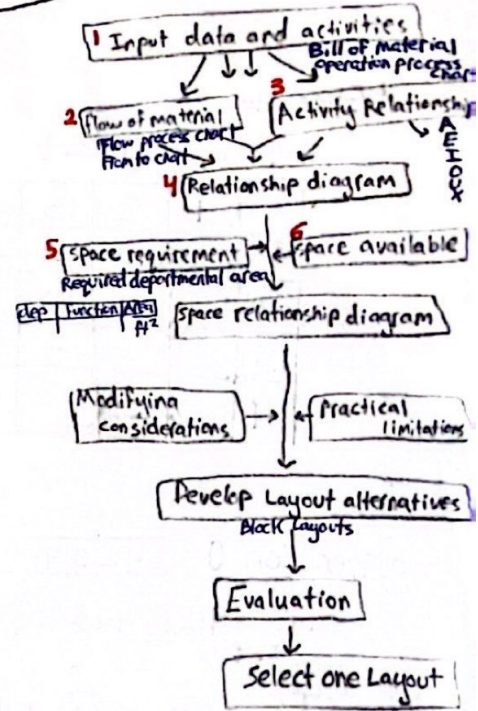 1 Input data and activities
Bill of material
operation process
char
2 flow of material
flow process chart
From to chart
3 Activity Relationship
A
E
I
O
U
X
4 Relationship diagram
5 space requirement
Required departmental area
6 space available
dep function Area
ft²
space relationship diagram
Modifying
considerations
Practical
limitations
Develop Layout alternatives
Block Layouts
Evaluation
Select one Layout